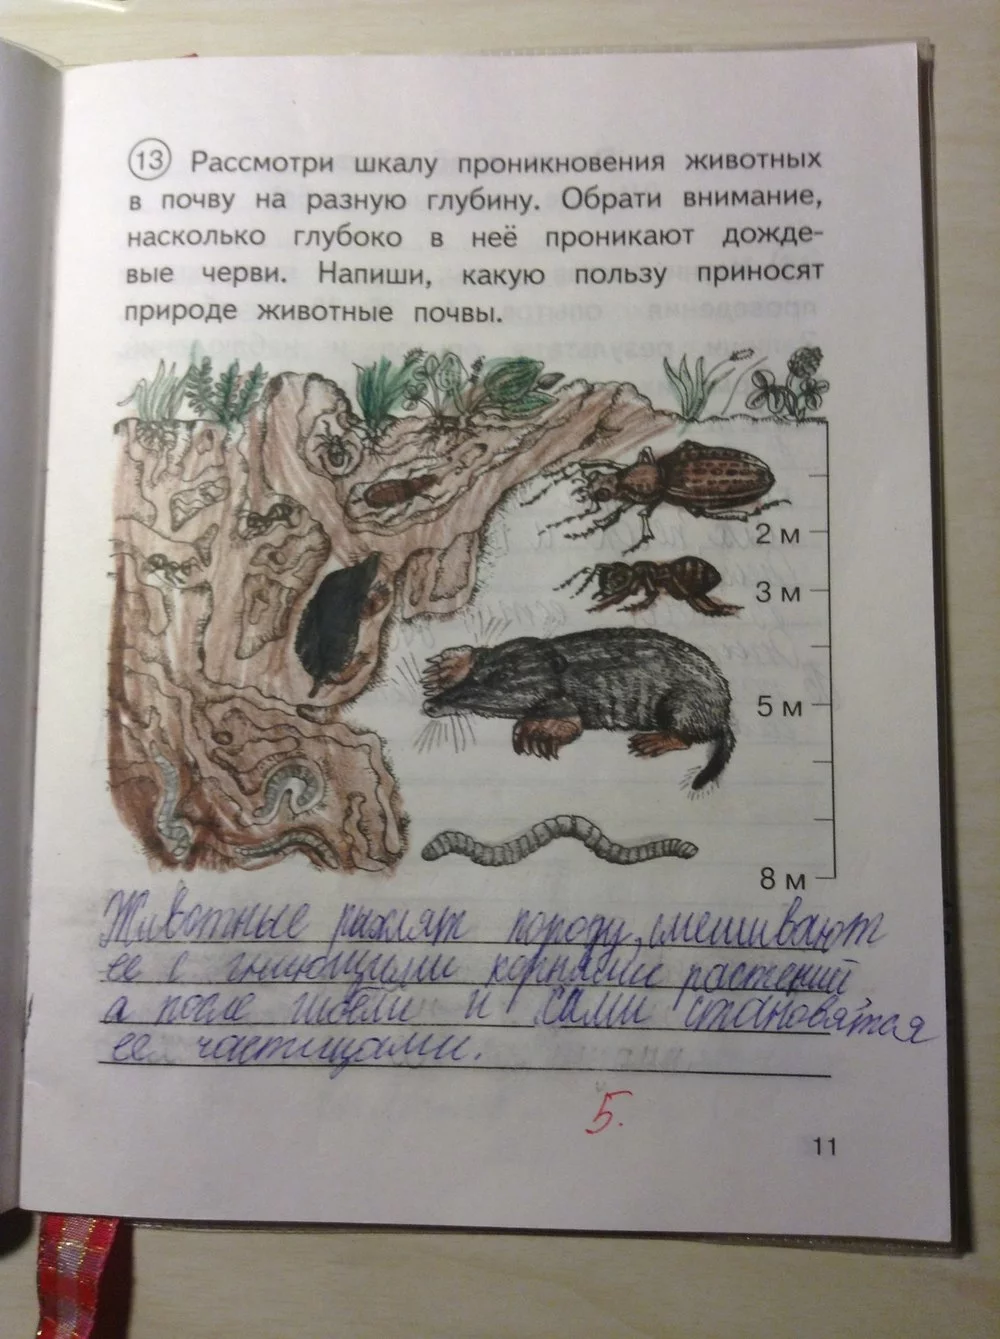 13 Рассмотри шкалу проникновения животных
в почву на разную глубину. Обрати внимание,
насколько глубоко в неё проникают дожде-
вые черви. Напиши, какую пользу приносят
природе животные почвы.
2 м
3 м
5 м
8 м
Животные рыхлят породу, смешивают
ее с гниющими корнями растений
а после гибели и сами становятся
ее частицами.
5.
11